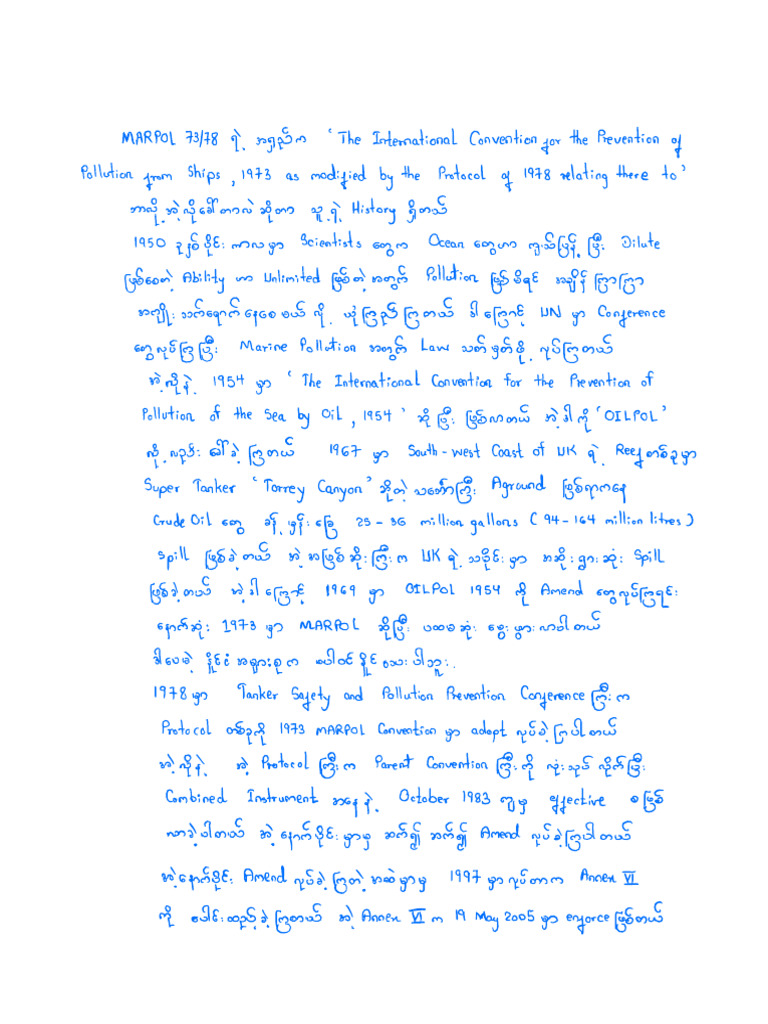 MARPOL 73/78 ရဲ့ အရှည်က ‘The International Convention for the Prevention of
Pollution from Ships, 1973 as modified by the Protocol of 1978 relating there to’
ဘာလို့အဲ့လိုခေါ်တာလဲဆိုတာ သူ့ရဲ့ History ရှိတယ်
1950 ခုနှစ်ဝိုင်းကာလမှာ Scientists တွေက Ocean တွေဟာ ကျယ်ပြန့်ပြီး Dilute
ဖြစ်စေတဲ့ Ability ဟာ Unlimited ဖြစ်တဲ့အတွက် Pollution ဖြစ်မိရင် အချိန်ကြာကြာ
အကျိုးသက်ရောက်နေစေမယ်လို့ ယုံကြည်ကြတယ် ဒါကြောင့် UN မှာ Conference
တွေလုပ်ကြပြီး Marine Pollution အတွက် Law သတ်မှတ်ဖို့ လုပ်ကြတယ်
အဲ့လိုနဲ့ 1954 မှာ ‘The International Convention for the Prevention of
Pollution of the Sea by Oil, 1954’ ဆိုပြီး ဖြစ်လာတယ် အဲ့ဒါကို ‘OILPOL’
လို့ လူသိများ ခေါ်ခဲ့ကြတယ် 1967 မှာ South-west Coast of UK ရဲ့ Reef တစ်ခုမှာ
Super Tanker ‘Torrey Canyon’ ဆိုတဲ့သင်္ဘောကြီး Aground ဖြစ်ရာကနေ
Crude Oil တွေ ခန့်မှန်းခြေ 25-36 million gallons (94-164 million litres)
Spill ဖြစ်ခဲ့တယ် အဲ့အဖြစ်ဆိုးကြီးက UK ရဲ့ သမိုင်းမှာ အဆိုးရွားဆုံး Spill
ဖြစ်ခဲ့တယ် အဲ့ဒါကြောင့် 1969 မှာ OILPOL 1954 ကို Amend တွေလုပ်ကြရင်း
နောက်ဆုံး 1973 မှာ MARPOL ဆိုပြီး ပထမဆုံး မွေးဖွားလာပါတယ်
ဒါပေမဲ့ နိုင်ငံအများစုက မပါဝင်နိုင်သေးပါဘူး.
1978 မှာ Tanker Safety and Pollution Prevention Conference ကြီးက
Protocol တစ်ခုကို 1973 MARPOL Convention မှာ adopt လုပ်ခဲ့ကြပါတယ်
အဲ့လိုနဲ့ အဲ့ Protocol ကြီးက Parent Convention ကြီးကို လုံးသုပ်လိုက်ပြီး
Combined Instrument အနေနဲ့ October 1983 ကျမှ effective စဖြစ်
လာခဲ့ပါတယ် အဲ့နောက်ပိုင်းမှာမှ ဆက်၍ ဆက်၍ Amend လုပ်ခဲ့ကြပါတယ်
အဲ့နောက်ပိုင်း Amend လုပ်ခဲ့ကြတဲ့အထဲမှာမှ 1997 မှာလုပ်တာက Annex VI
ကို ပေါင်းထည့်ခဲ့ကြတယ် အဲ့ Annex VI က 19 May 2005 မှာ enforce ဖြစ်တယ်